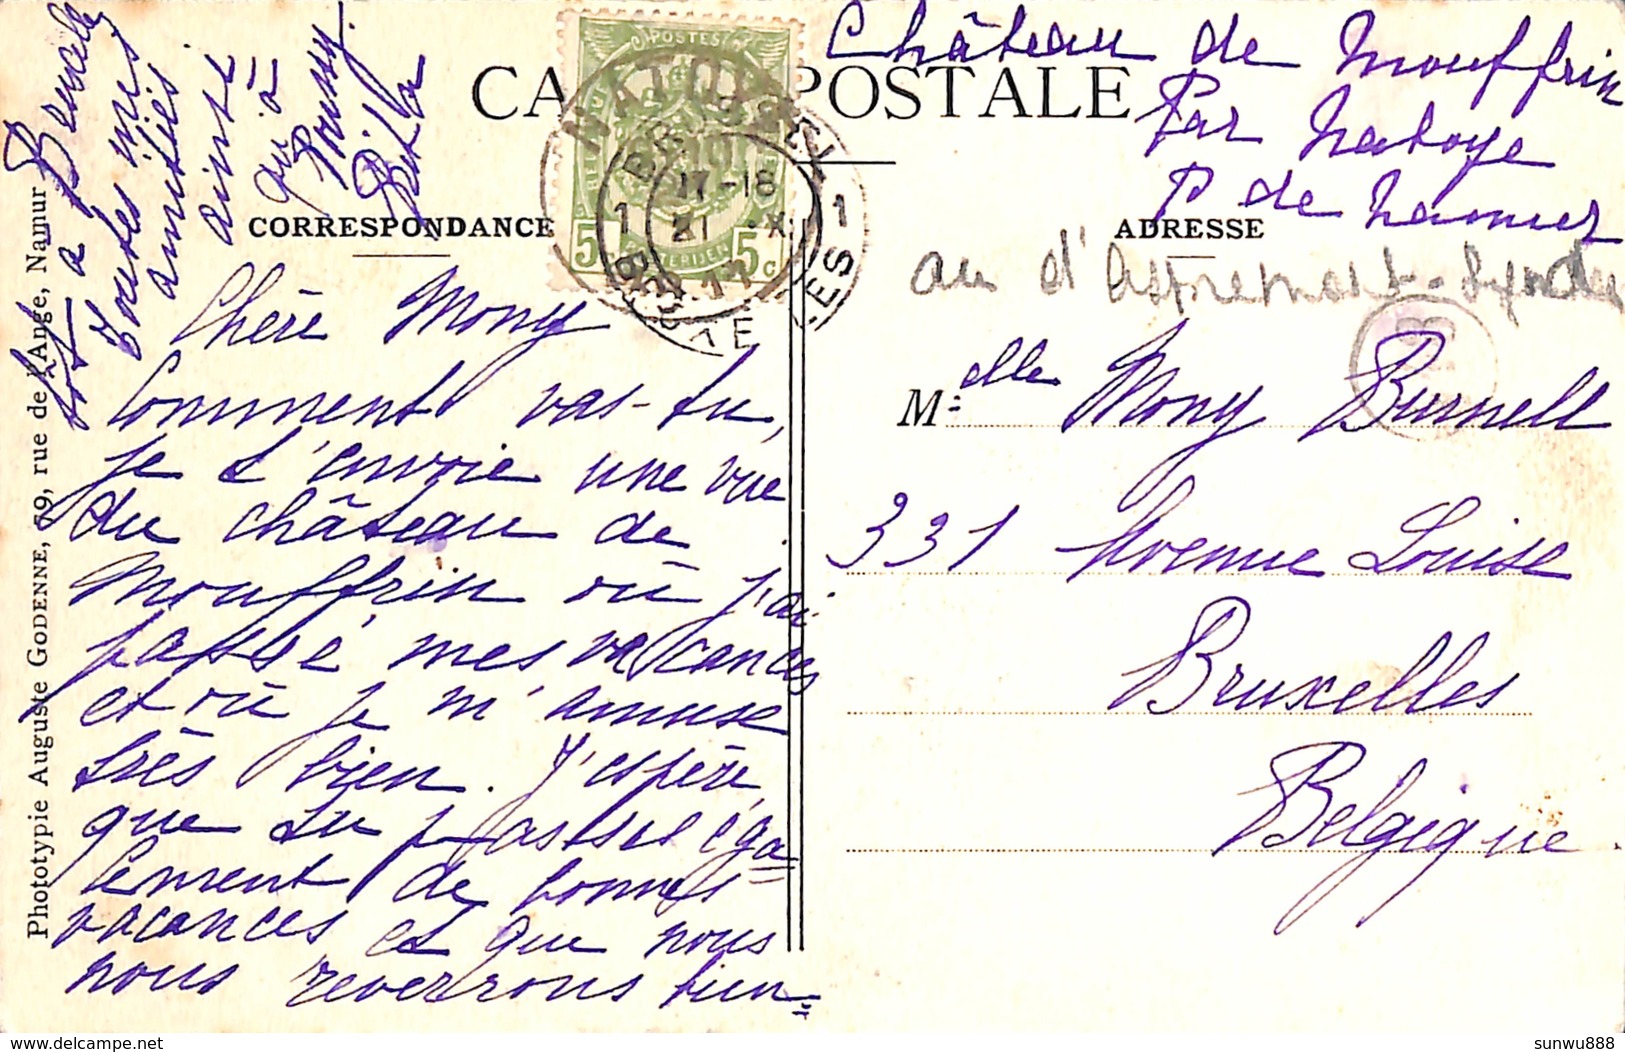 CARTE POSTALE
CORRESPONDANCE
ADRESSE
Château de Mouffrin
Par Natoye
P de Namur
au d'Aspremont-Lynden
Chère Mony
Comment vas-tu,
je t'envoie une vue
du château de
Mouffrin où j'ai
passé mes vacances
et où je m'amuse
très bien. J'espère
que tu passes éga
lement de bonnes
vacances et que nous
nous reverrons bien=
tôt à Bruxelles
toutes mes
amitiés
ainsi
qu'à
Poussy.
Bita
Melle Mony Burnell
331 Avenue Louise
Bruxelles
Belgique.
POSTES
5 POSTERIJEN 5c
NATOYE
17-18
XI X
Phototypie Auguste GODENNE, 59, rue de l'Ange, Namur
delcampe.net
sunwu888